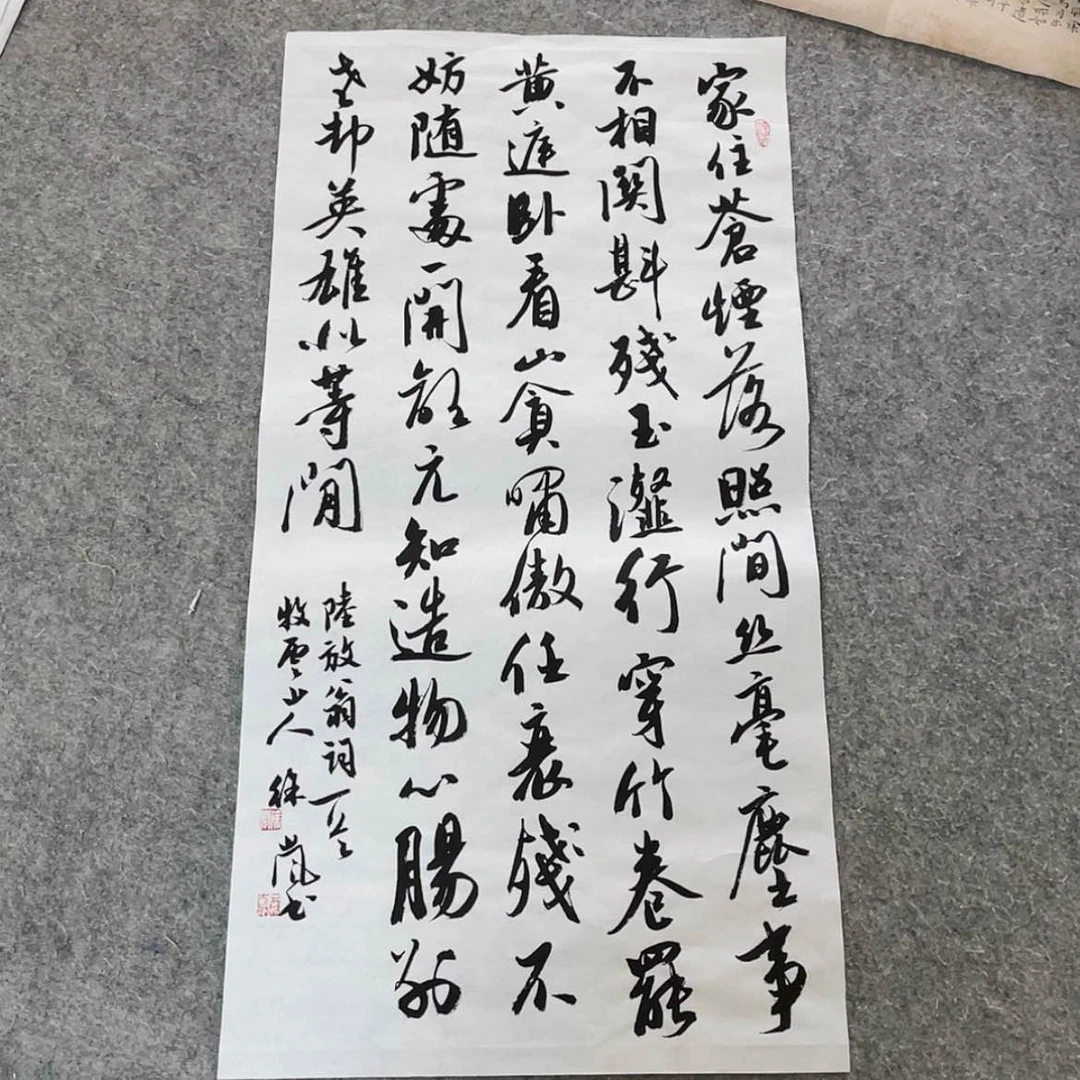 家住蒼煙落照間丝毫塵事
不相関斟残玉瀣行穿竹卷罷
黄庭卧看山貪嘯傲任衰残不
妨随處一開顔元知造物心腸别
老却英雄似等閒
陸放翁詞一首
牧雲山人徐嵐书